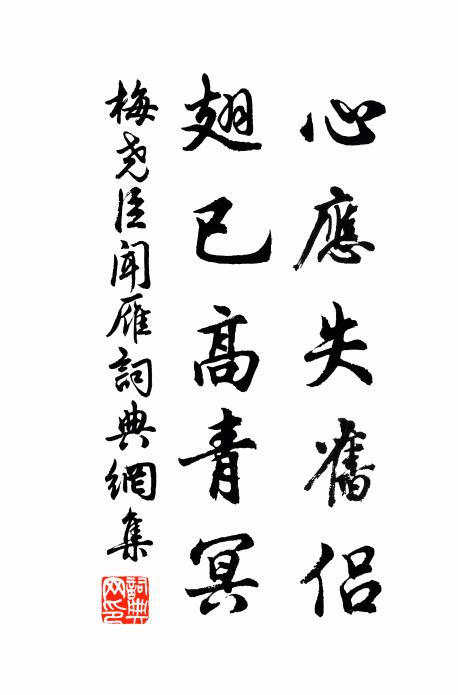 心應失舊侶
翅已高青冥
梅尧臣聞雁詞典網集
詞典网印